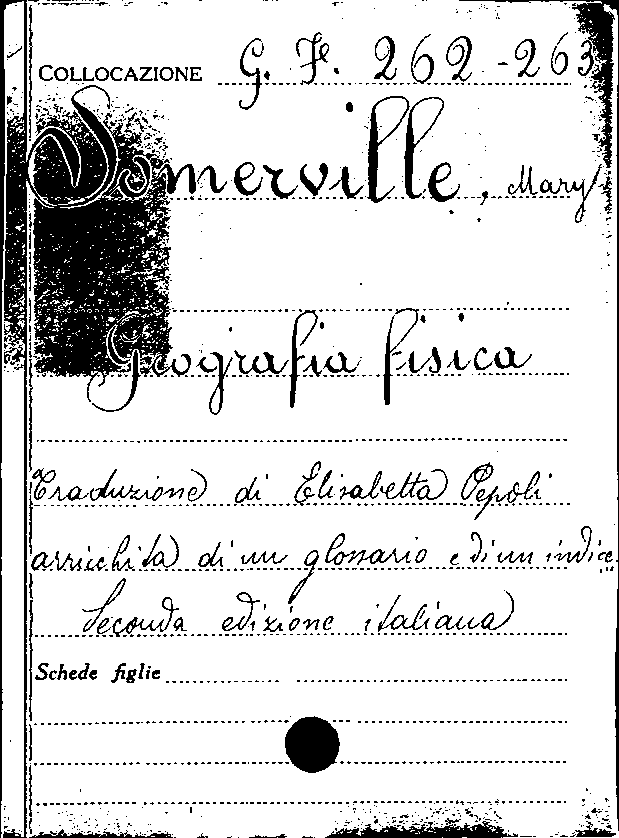 COLLOCAZIONE G. F. 262-263
Somerville, Mary
Geografia fisica
Traduzione di Elisabetta Pepoli
arricchita di un glossario e di un indice.
Seconda edizione italiana
Schede figlie